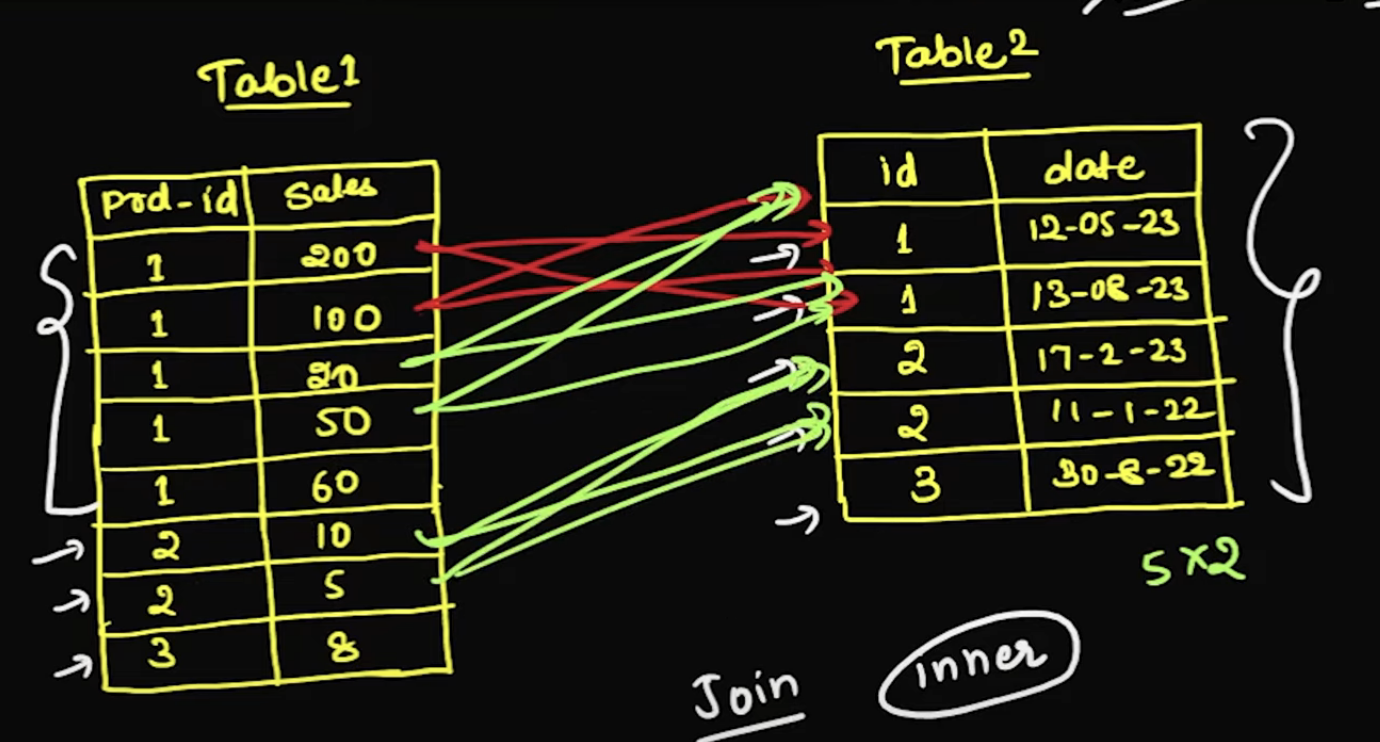 Table1
prd-id Sales
1 200
1 100
1 20
1 50
1 60
2 10
2 5
3 8
Table2
id date
1 12-05-23
1 13-08-23
2 17-2-23
2 11-1-22
3 30-8-22
5x2
Join inner